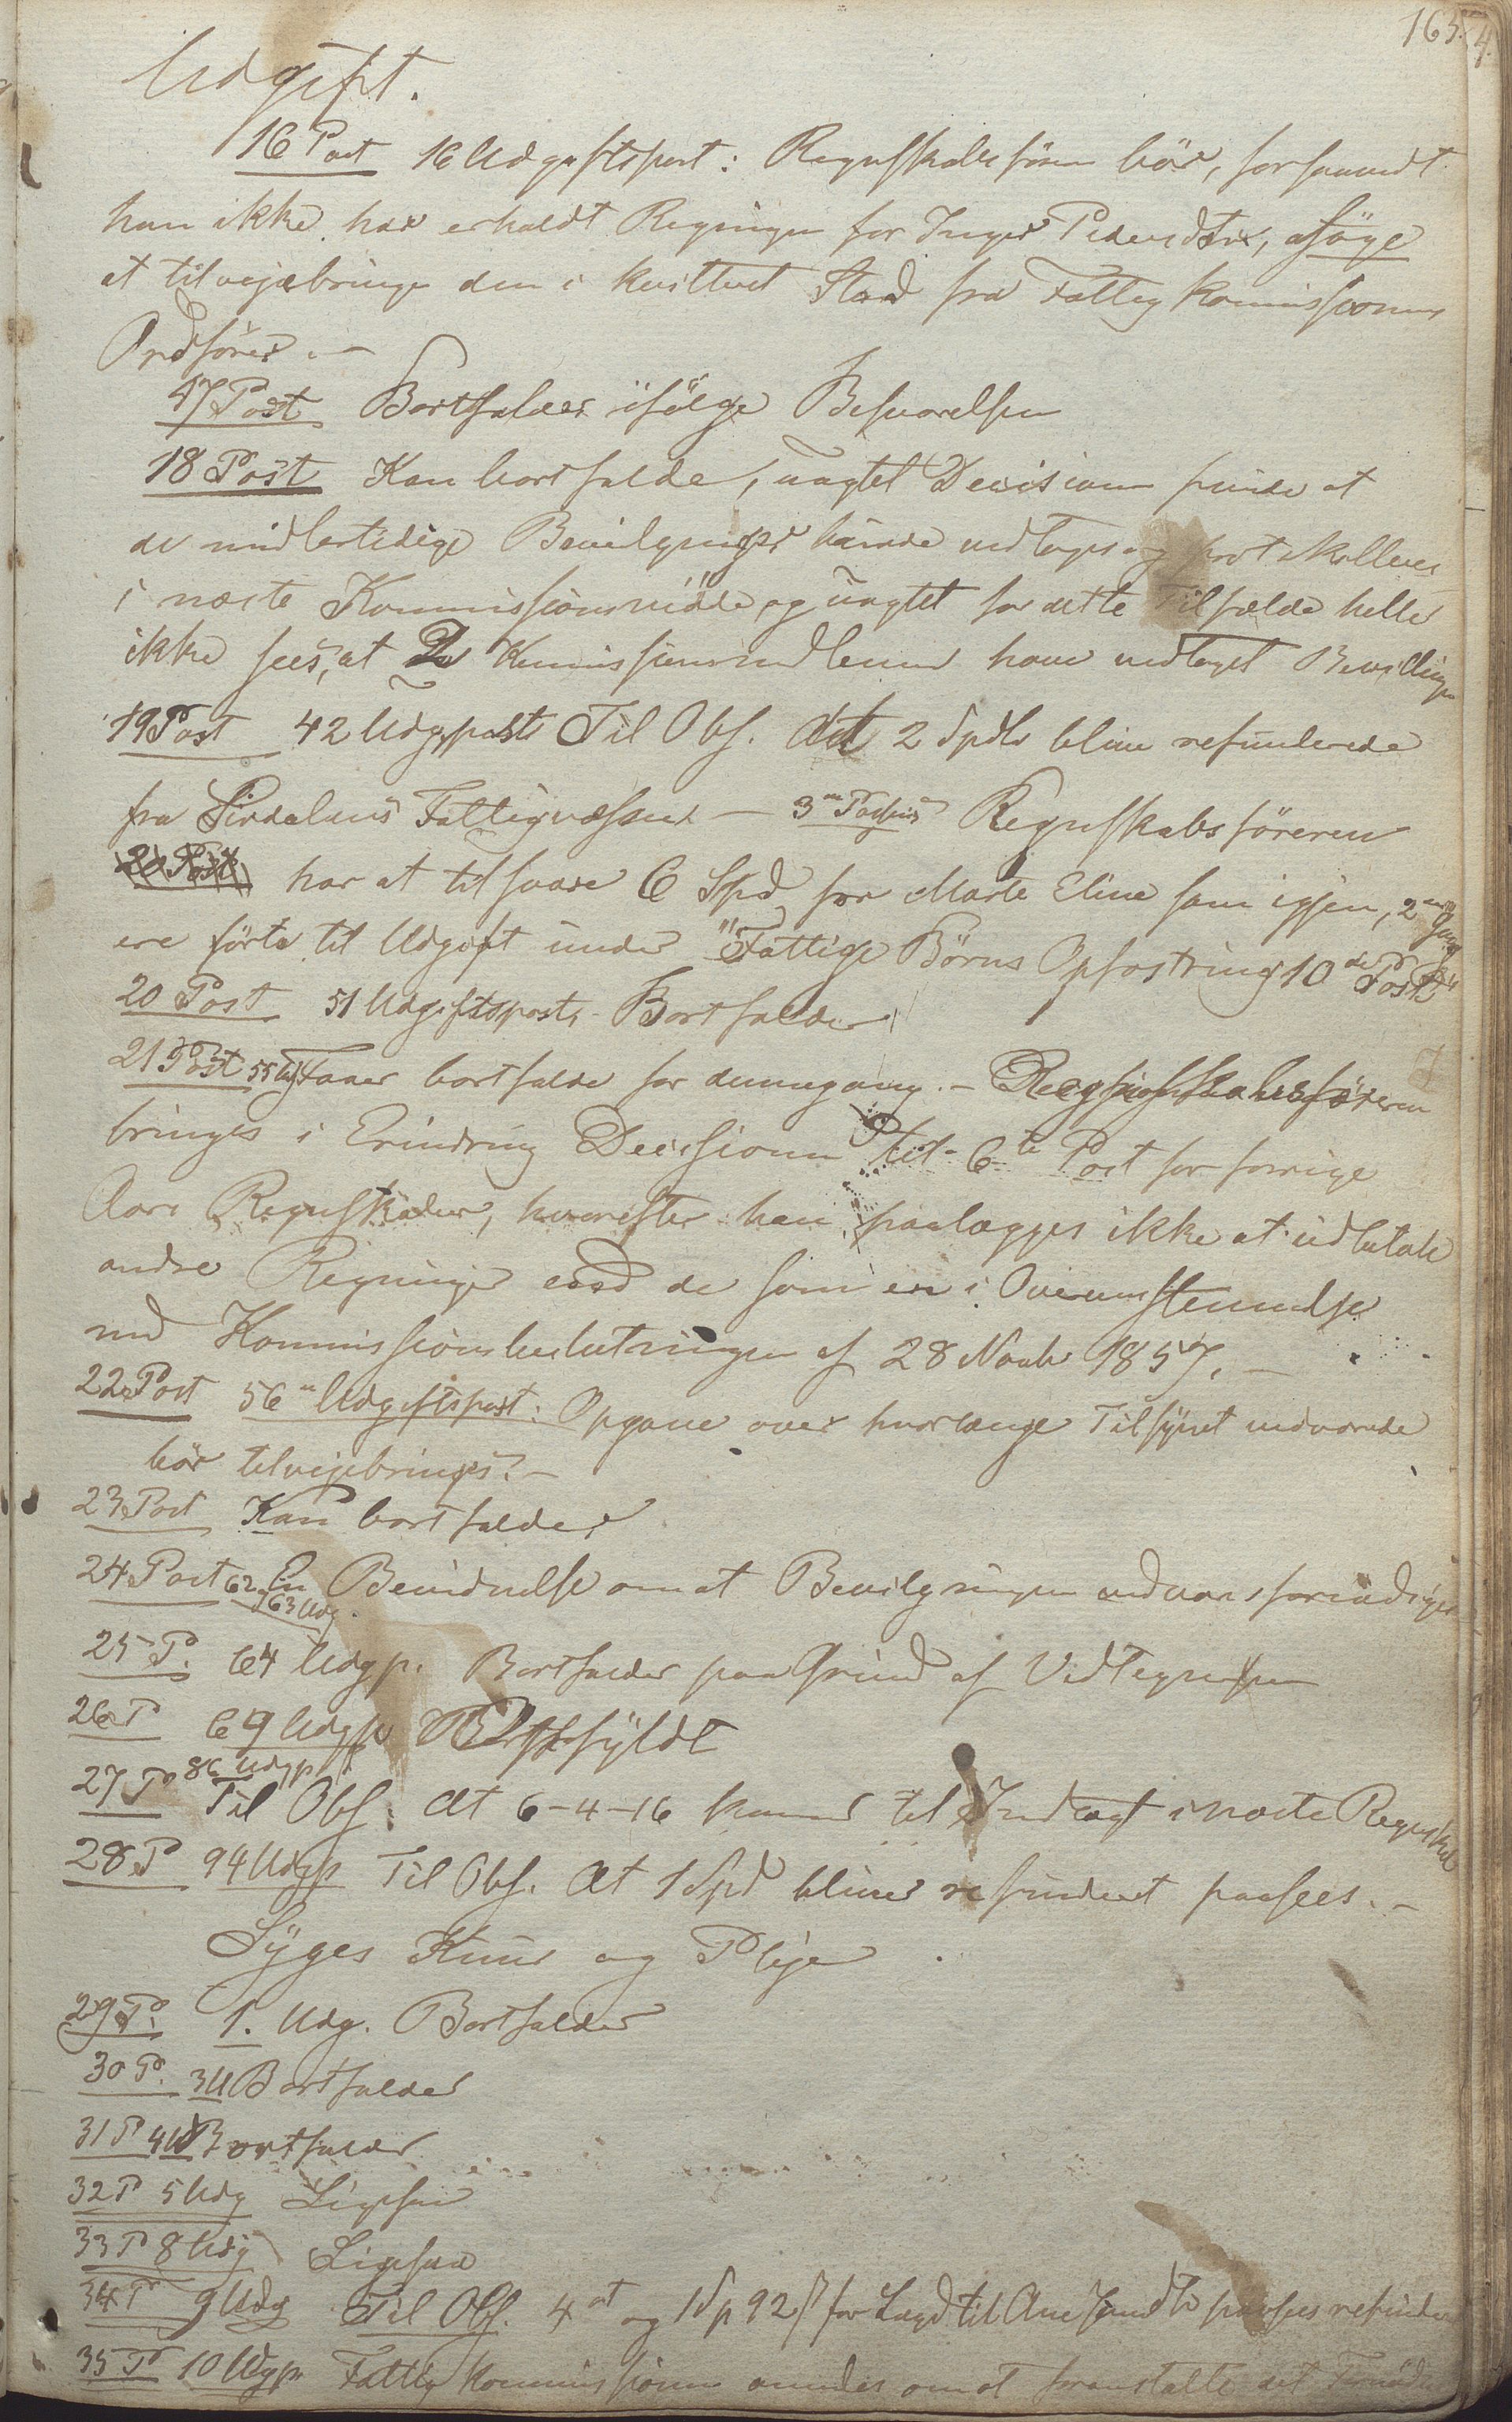 163.
4.
Udgift.
16 Post 16 Udgiftspost: Regnskabsføren bör, forsaavidt
han ikke har erholdt Regningen for Inger Pedersdtr,
at tilvejebringe den i kvitteret Stand fra Fattigkommissionens
Ordfører. -
17 Post Bortfalder ifølge Besvarelsen
18 Post Kan bortfalde, uagtet Decisionen
de midlertidige Bevilgninger burde vedtages og protokolleres
i næste Kommissionsmöde, og uagtet for dette Tilfælde heller
ikke sees, at Kommissionsmedlemmer have vedtaget Bevilgningen
19 Post 42 Udgpost Til Obs. At 2 Spdlr blive refunderede
fra Sirdalens Fattigvæsen - Regnskabsföreren
20 Post har at tilsvare 6 Spd for Marte Eline som igjen, 2den Gang
ere förte til Udgift under "Fattige Börns Opfostring 10de Post"
20 Post 51 Udgiftspost, - Bortfalder
21 Post 55 Udg Faaer bortfalde for dennegang. - Regnskabsföreren
bringes i Erindring Decisionen til 6te Post for forrige
Aars Regnskaber, hvorefter han paalægges ikke at udbetale
andre Regninger end de som er i Overensstemmelse
med Kommissionsbeslutningen af 28 Novbr 1857. -
22 Post 56 Udgiftspost: Opgave over hvorlænge Tilsynet medvarede
bör tilvejebringes. -
23 Post Kan bortfalde.
24 Post 62 En Bevidnelse om at Bevilgningen
63 Udg.
25 P. 64 Udgp. Bortfalder paa Grund af Vedtegnelsen
26 P 69 Udgp
27 P 86 Udgp Til Obs. At 6-4-16 kommer til Indtægt i næste Regnskab
28 P 94 Udgp Til Obs. At 1 Spd bliver refunderet paasees. -
Syges Kuur og Pleje
29 P. 1. Udg. Bortfalder
30 P. 3 U Bortfalder
31 P 4 U Bortfalder
32 P 5 Udg Ligesaa
33 P 8 Udg Ligesaa
34 P 9 Udg Til Obs. 4 ort og 1 Sp 92 ß for Lægd til Ane paasees refunder
35 P 10 Udgp Fattigkommissionen anmodes om at foranstalte det